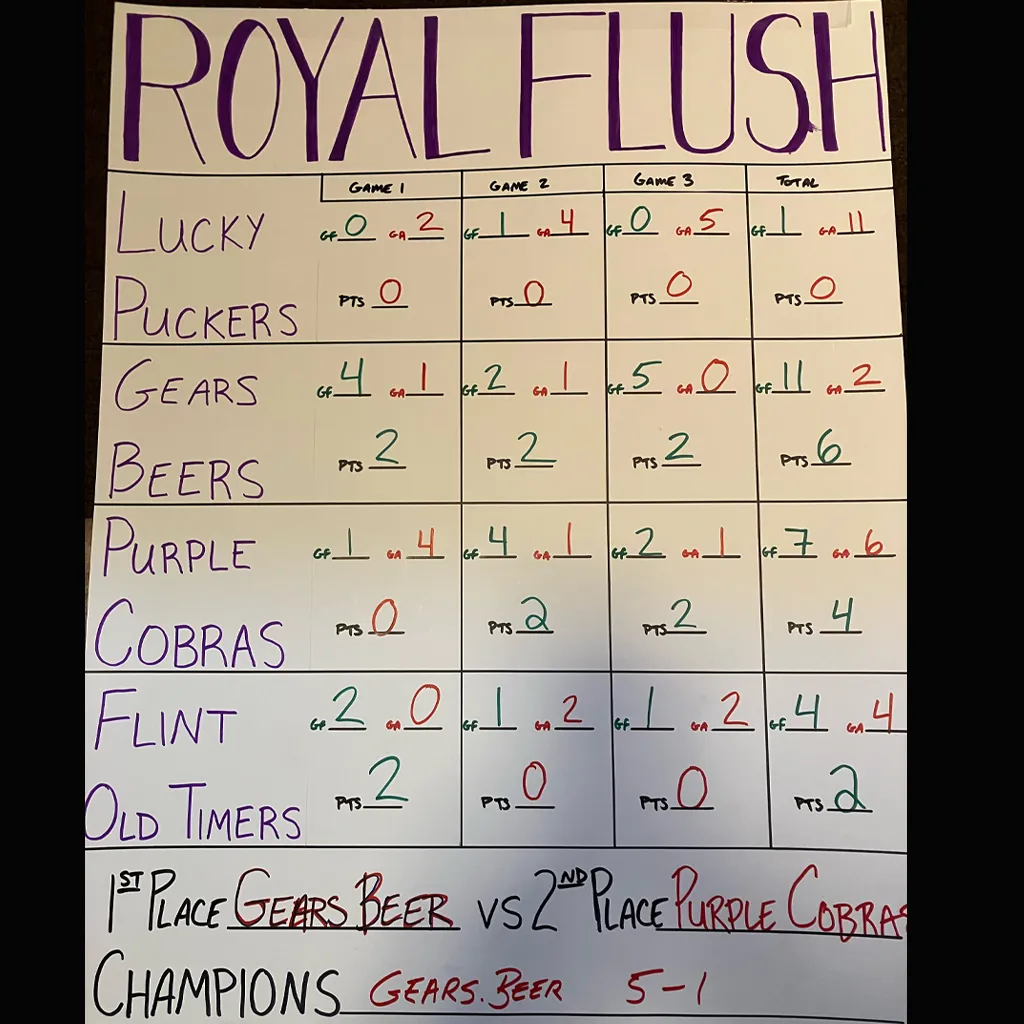 ROYAL FLUSH
GAME 1 GAME 2 GAME 3 TOTAL
LUCKY GF 0 GA 2 GF 1 GA 4 GF 0 GA 5 GF 1 GA 11
PUCKERS PTS 0 PTS 0 PTS 0 PTS 0
GEARS GF 4 GA 1 GF 2 GA 1 GF 5 GA 0 GF 11 GA 2
BEERS PTS 2 PTS 2 PTS 2 PTS 6
PURPLE GF 1 GA 4 GF 4 GA 1 GF 2 GA 1 GF 7 GA 6
COBRAS PTS 0 PTS 2 PTS 2 PTS 4
FLINT GF 2 GA 0 GF 1 GA 2 GF 1 GA 2 GF 4 GA 4
OLD TIMERS PTS 2 PTS 0 PTS 0 PTS 2
1ST PLACE GEARS BEER VS 2ND PLACE PURPLE COBRAS
CHAMPIONS GEARS.BEER 5-1